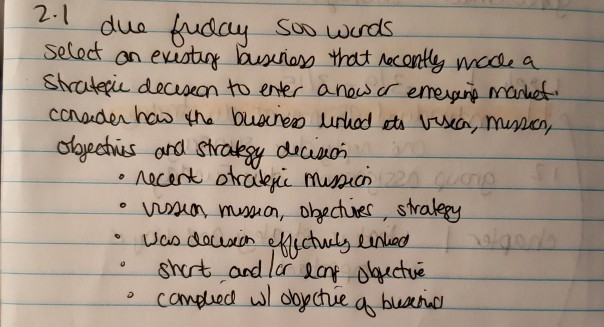 2.1 due friday 500 words
select an existing business that recently made a
strategic decision to enter a new or emerging market.
consider how the business linked its vision, mission,
objectives and strategy decision
• recent strategic mission
• vission, mission, objectives, strategy
• was decision effectively linked
• short and/or long objective
• complied w/ objective of business